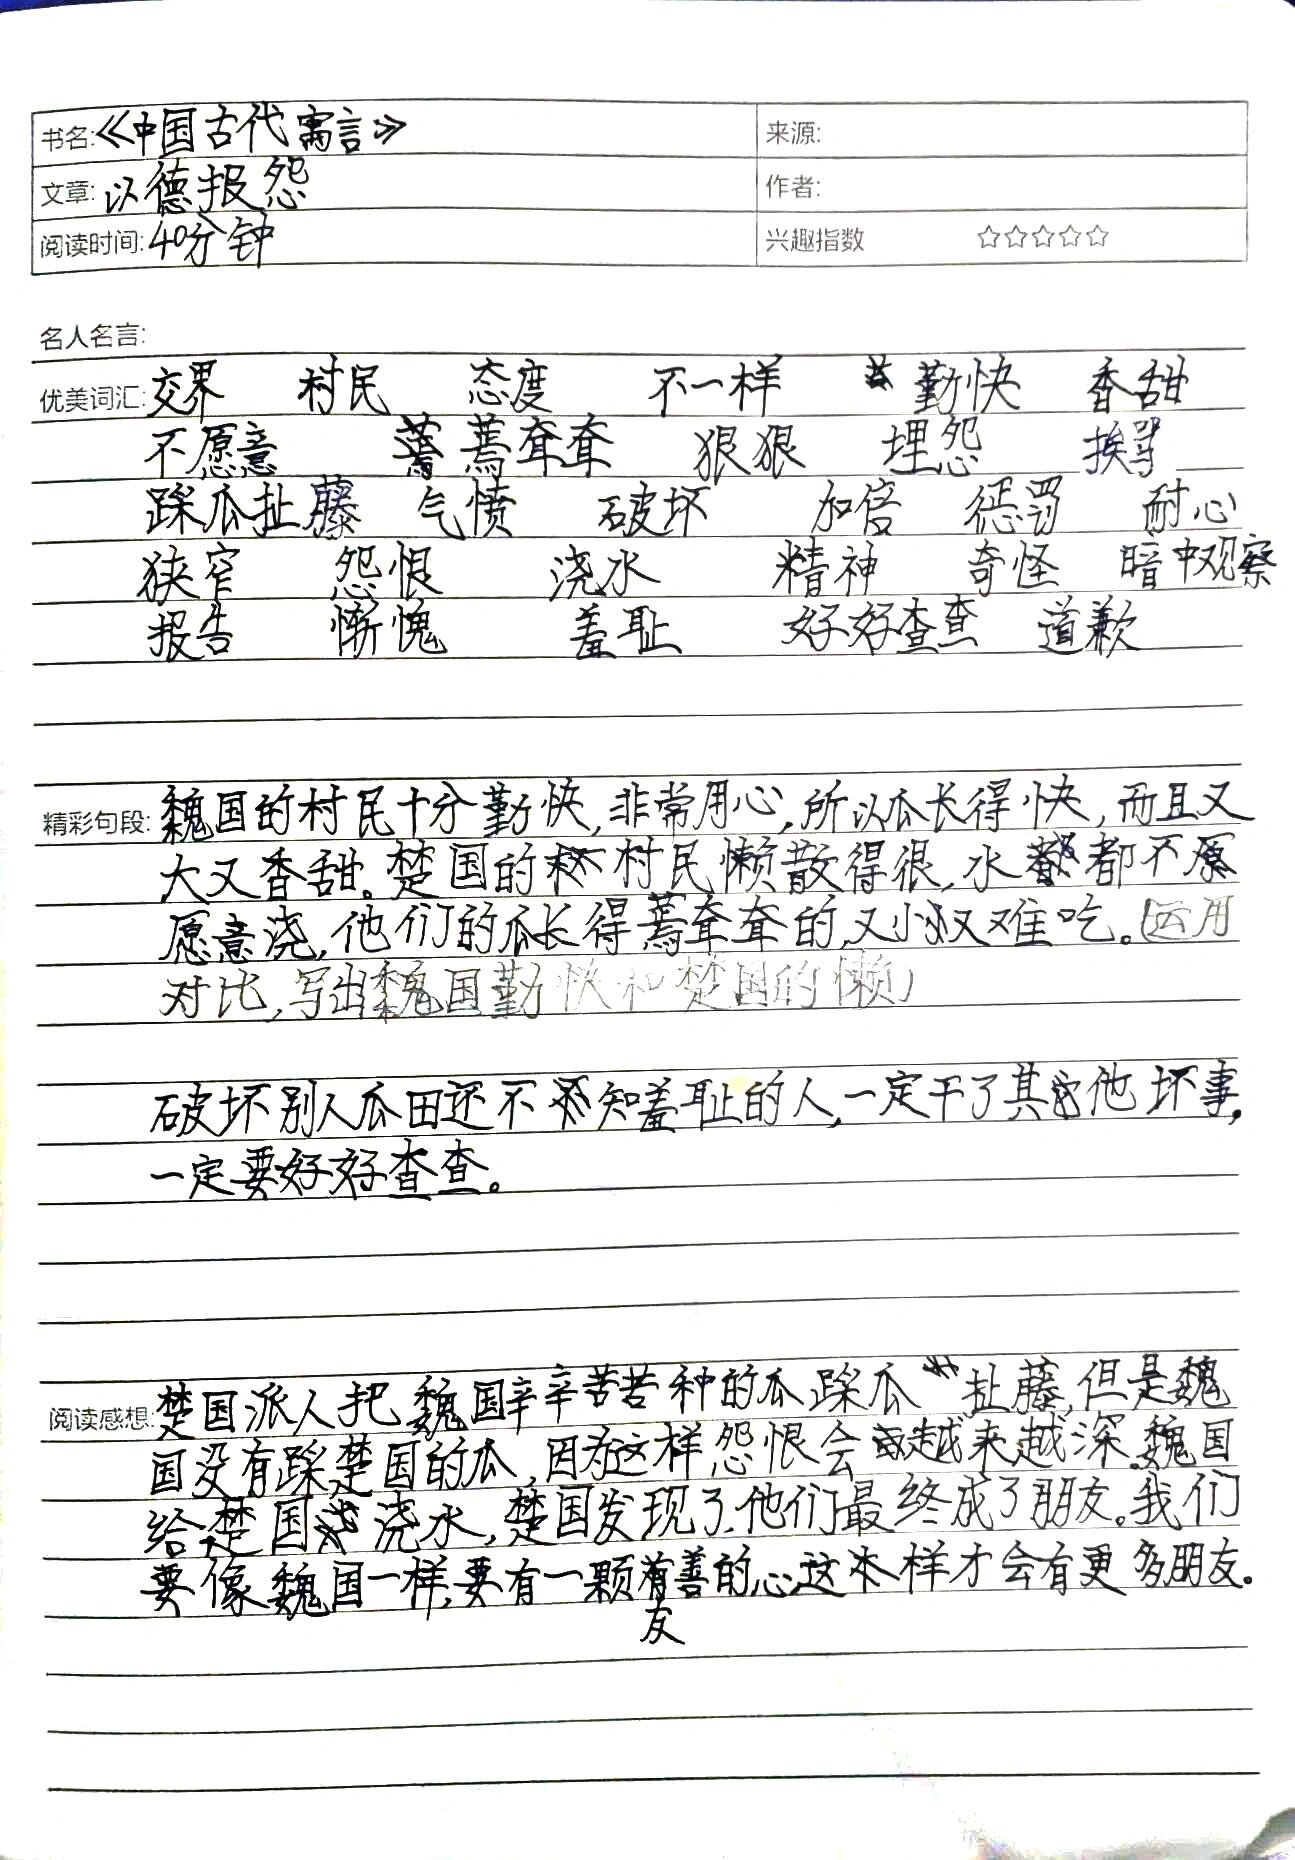 书名:《中国古代寓言》 来源:
文章:以德报怨 作者:
阅读时间:40分钟 兴趣指数 ☆☆☆☆☆
名人名言:
优美词汇:交界 村民 态度 不一样 勤快 香甜
不愿意 蔫蔫耷耷 狠狠 埋怨 挨骂
踩瓜扯藤 气愤 破坏 加倍 惩罚 耐心
狭窄 怨恨 浇水 精神 奇怪 暗中观察
报告 惭愧 羞耻 好好查查 道歉
精彩句段:魏国的村民十分勤快,非常用心,所以瓜长得快,而且又
大又香甜。楚国的村民懒散得很,水都不
愿意浇,他们的瓜长得蔫耷耷的,又小又难吃。(运用
对比,写出魏国勤快和楚国的懒)
破坏别人瓜田还不知羞耻的人,一定干了其他坏事,
一定要好好查查。
阅读感想:楚国派人把魏国辛辛苦苦种的瓜踩瓜扯藤,但是魏
国没有踩楚国的瓜,因为这样怨恨会越来越深.魏国
给楚国浇水,楚国发现了.他们最终成了朋友。我们
要像魏国一样,要有一颗友善的心,这样才会有更多朋友。